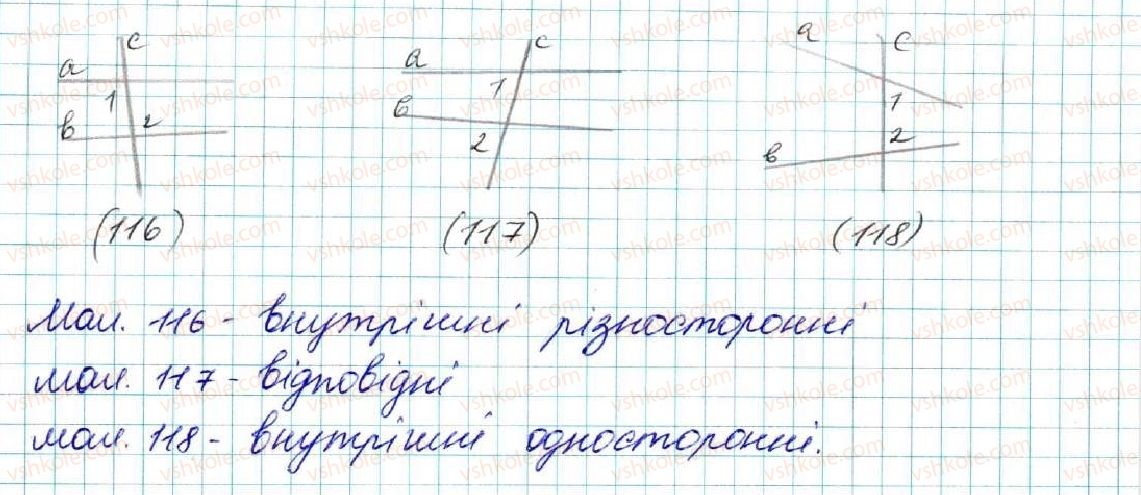 a c 1 в 2
a c 1 в 2
a c 1 2 в
(116) (117) (118)
Мал. 116 - внутрішні різносторонні
мал. 117 - відповідні
мал. 118 - внутрішні односторонні.
vshkole.com